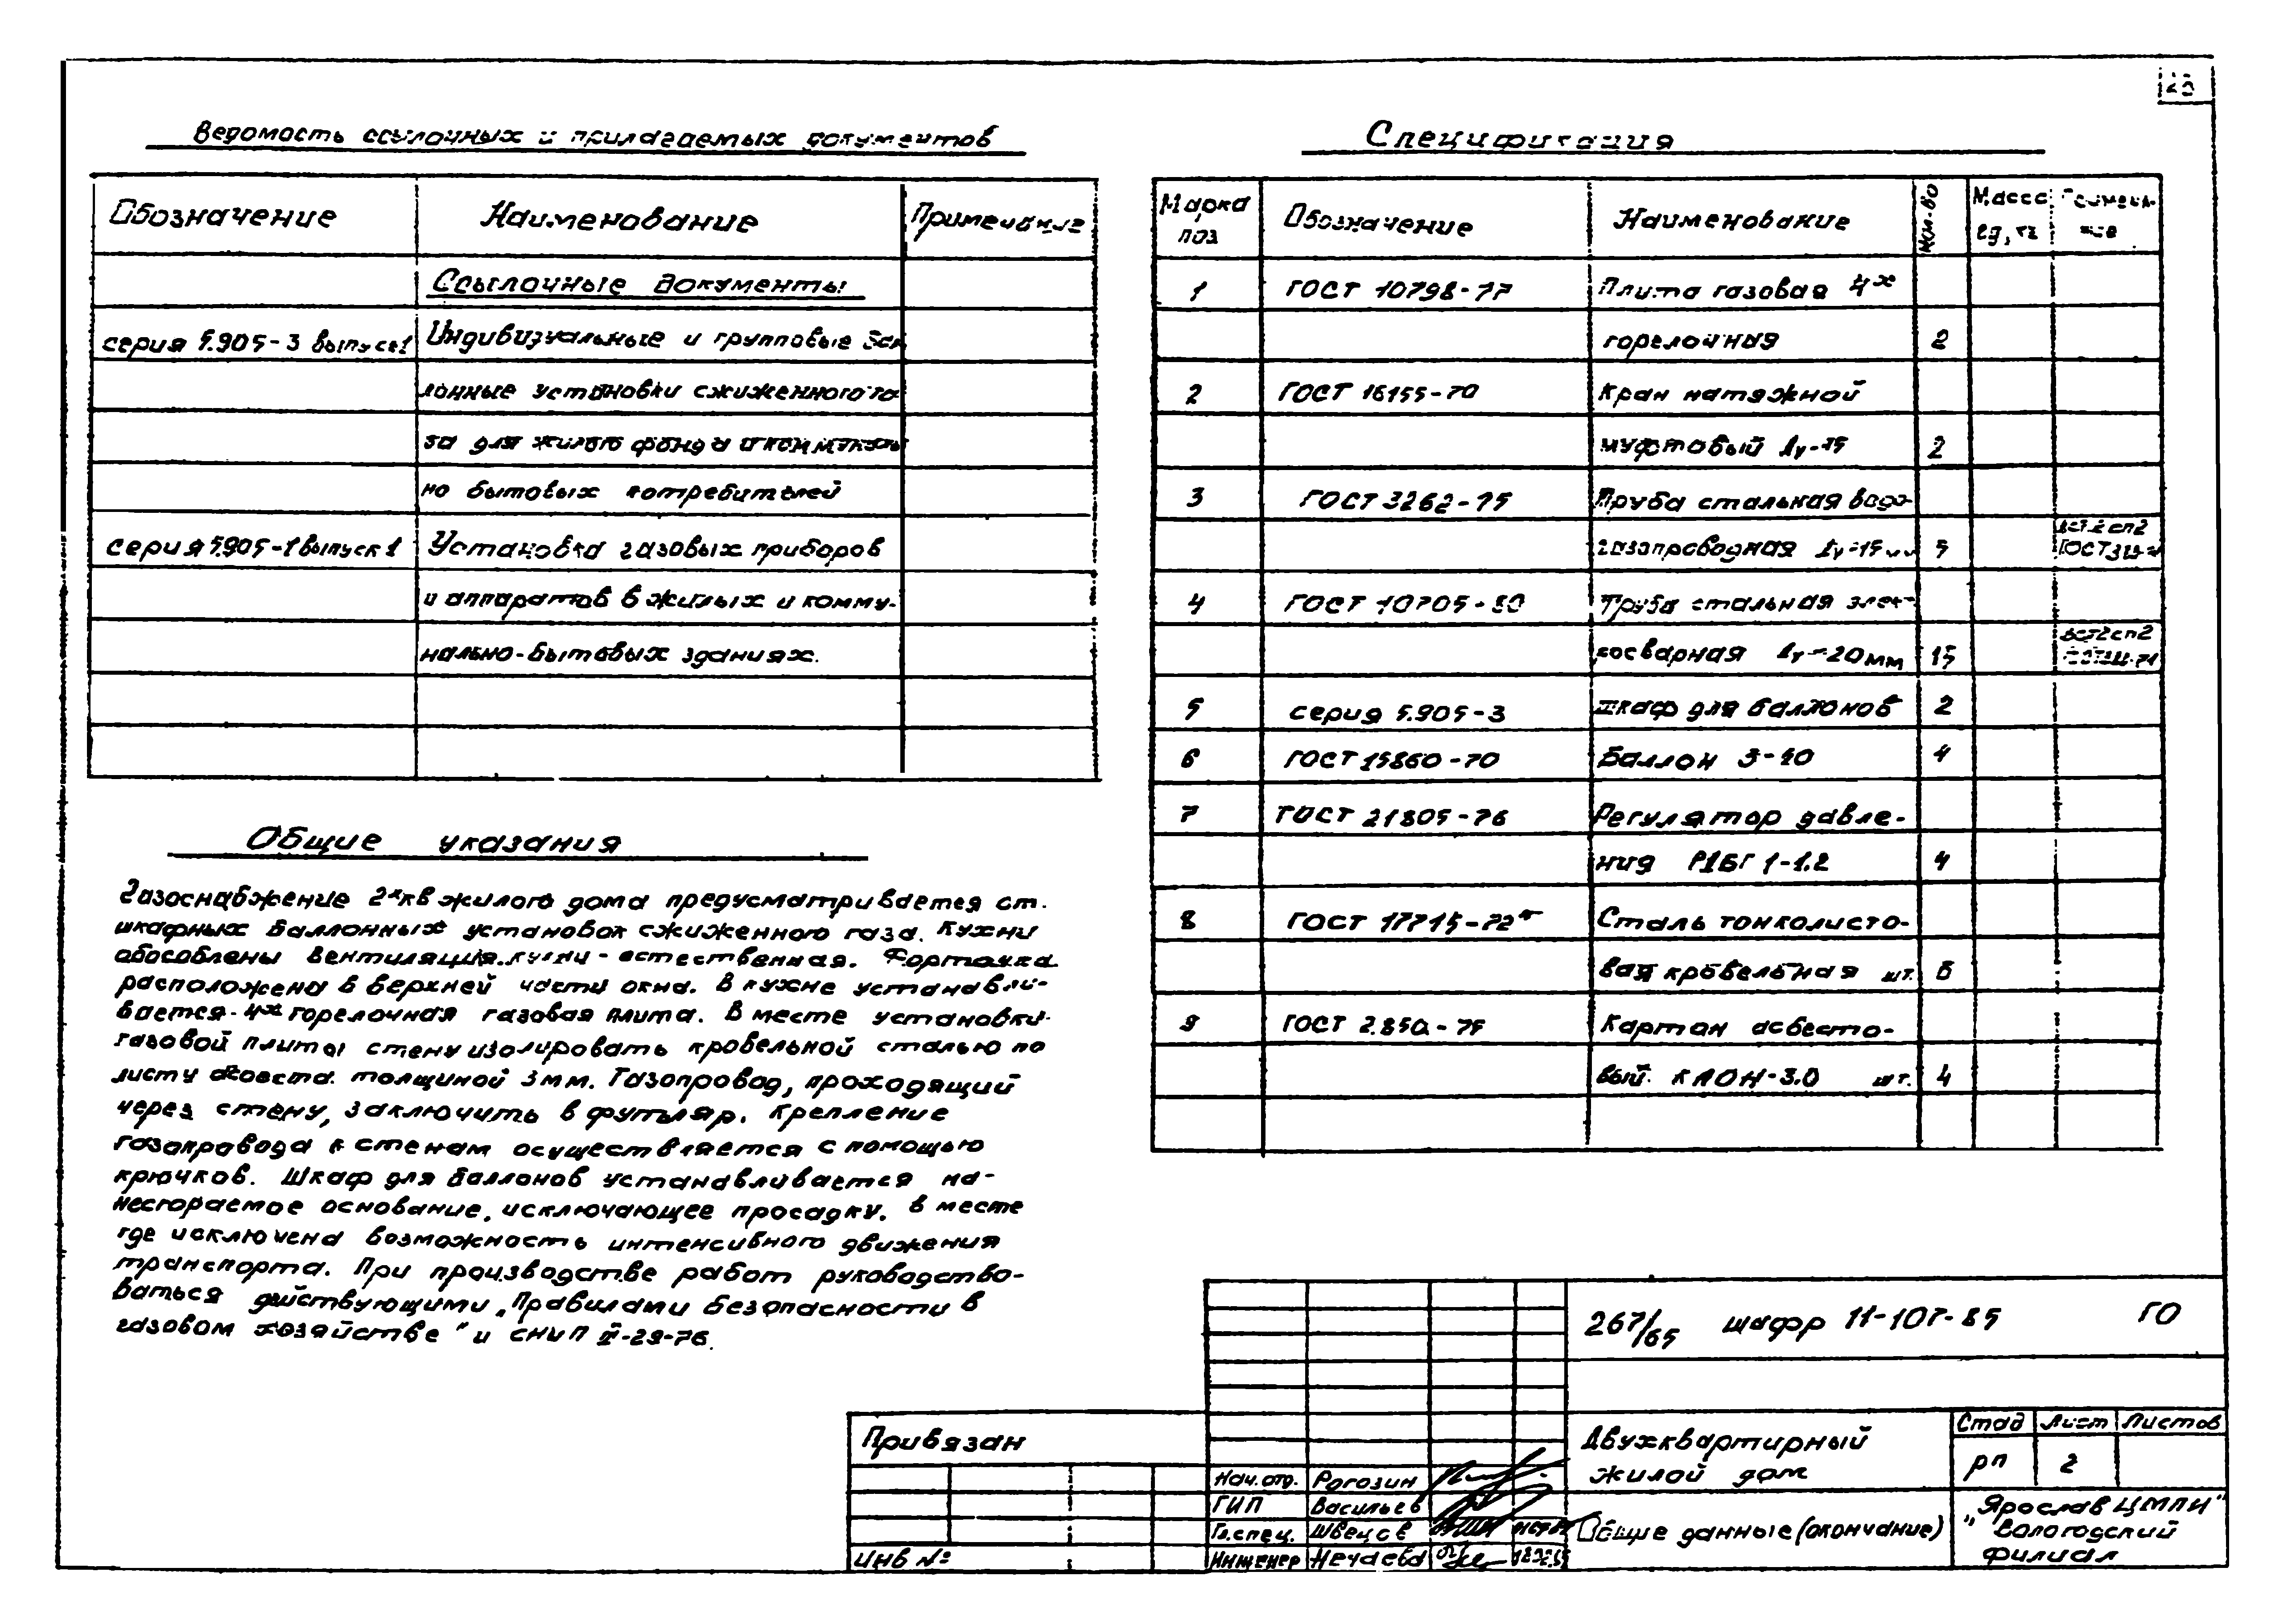 Ведомость ссылочных и прилагаемых документов
Обозначение Наименование Примечание
Ссылочные документы
серия 5.905-3 выпуск 1 Индивидуальные и групповые бал
лонные установки сжиженного га
за для жилого фонда и коммуналь
но бытовых потребителей
серия 5.905-1 выпуск 1 Установка газовых приборов
и аппаратов в жилых и комму-
нально-бытовых зданиях.
Общие указания
Газоснабжение 2х кв жилого дома предусматривается от.
шкафных баллонных установок сжиженного газа. Кухни
обособлены вентиляция кухни - естественная. Форточка
расположена в верхней части окна. В кухне устанавли-
вается - 4х горелочная газовая плита. В месте установки
газовой плиты стену изолировать кровельной сталью по
листу толщиной 3мм. Газопровод, проходящий
через стену, заключить в футляр. Крепление
газопровода к стенам осуществляется с помощью
крючков. Шкаф для баллонов устанавливается на-
несгораемое основание, исключающее просадку, в месте
где исключена возможность интенсивного движения
транспорта. При производстве работ руководство-
ваться действующими „Правилами безопасности в
газовом хозяйстве" и СНиП II-29-76.
Спецификация
Марка поз Обозначение Наименование Кол-во Масса ед, кг Примеча-ние
1 ГОСТ 10798-77 Плита газовая 4х
горелочная 2
2 ГОСТ 16155-70 Кран натяжной
муфтовый Ду-15 2
3 ГОСТ 3262-75 Труба стальная водо-
газопроводная Ду-15мм 5 Вст.2 сп2
4 ГОСТ 10705-80 Труба стальная элек-
тросварная Ду-20мм 15 Вст2 сп2
5 серия 5.905-3 шкаф для баллонов 2
6 ГОСТ 15860-70 Баллон 3-40 4
7 ГОСТ 21805-76 Регулятор давле-
ния РДБГ 1-1.2 4
8 ГОСТ 17715-72* Сталь тонколисто-
вая кровельная шт. 6
9 ГОСТ 2.850-75 Картон асбесто-
вый КАОН-3.0 шт. 4
267/65 шифр 11-107-85 ГО
Привязан
Инв №
Нач.отд. Рогозин
ГИП Васильев
Гл.спец. Швецов
Инженер Нечаева
Двухквартирный
жилой дом
Стад Лист Листов
рп 2
Общие данные (окончание)
"Ярослав ЦМПИ"
Вологодский
филиал